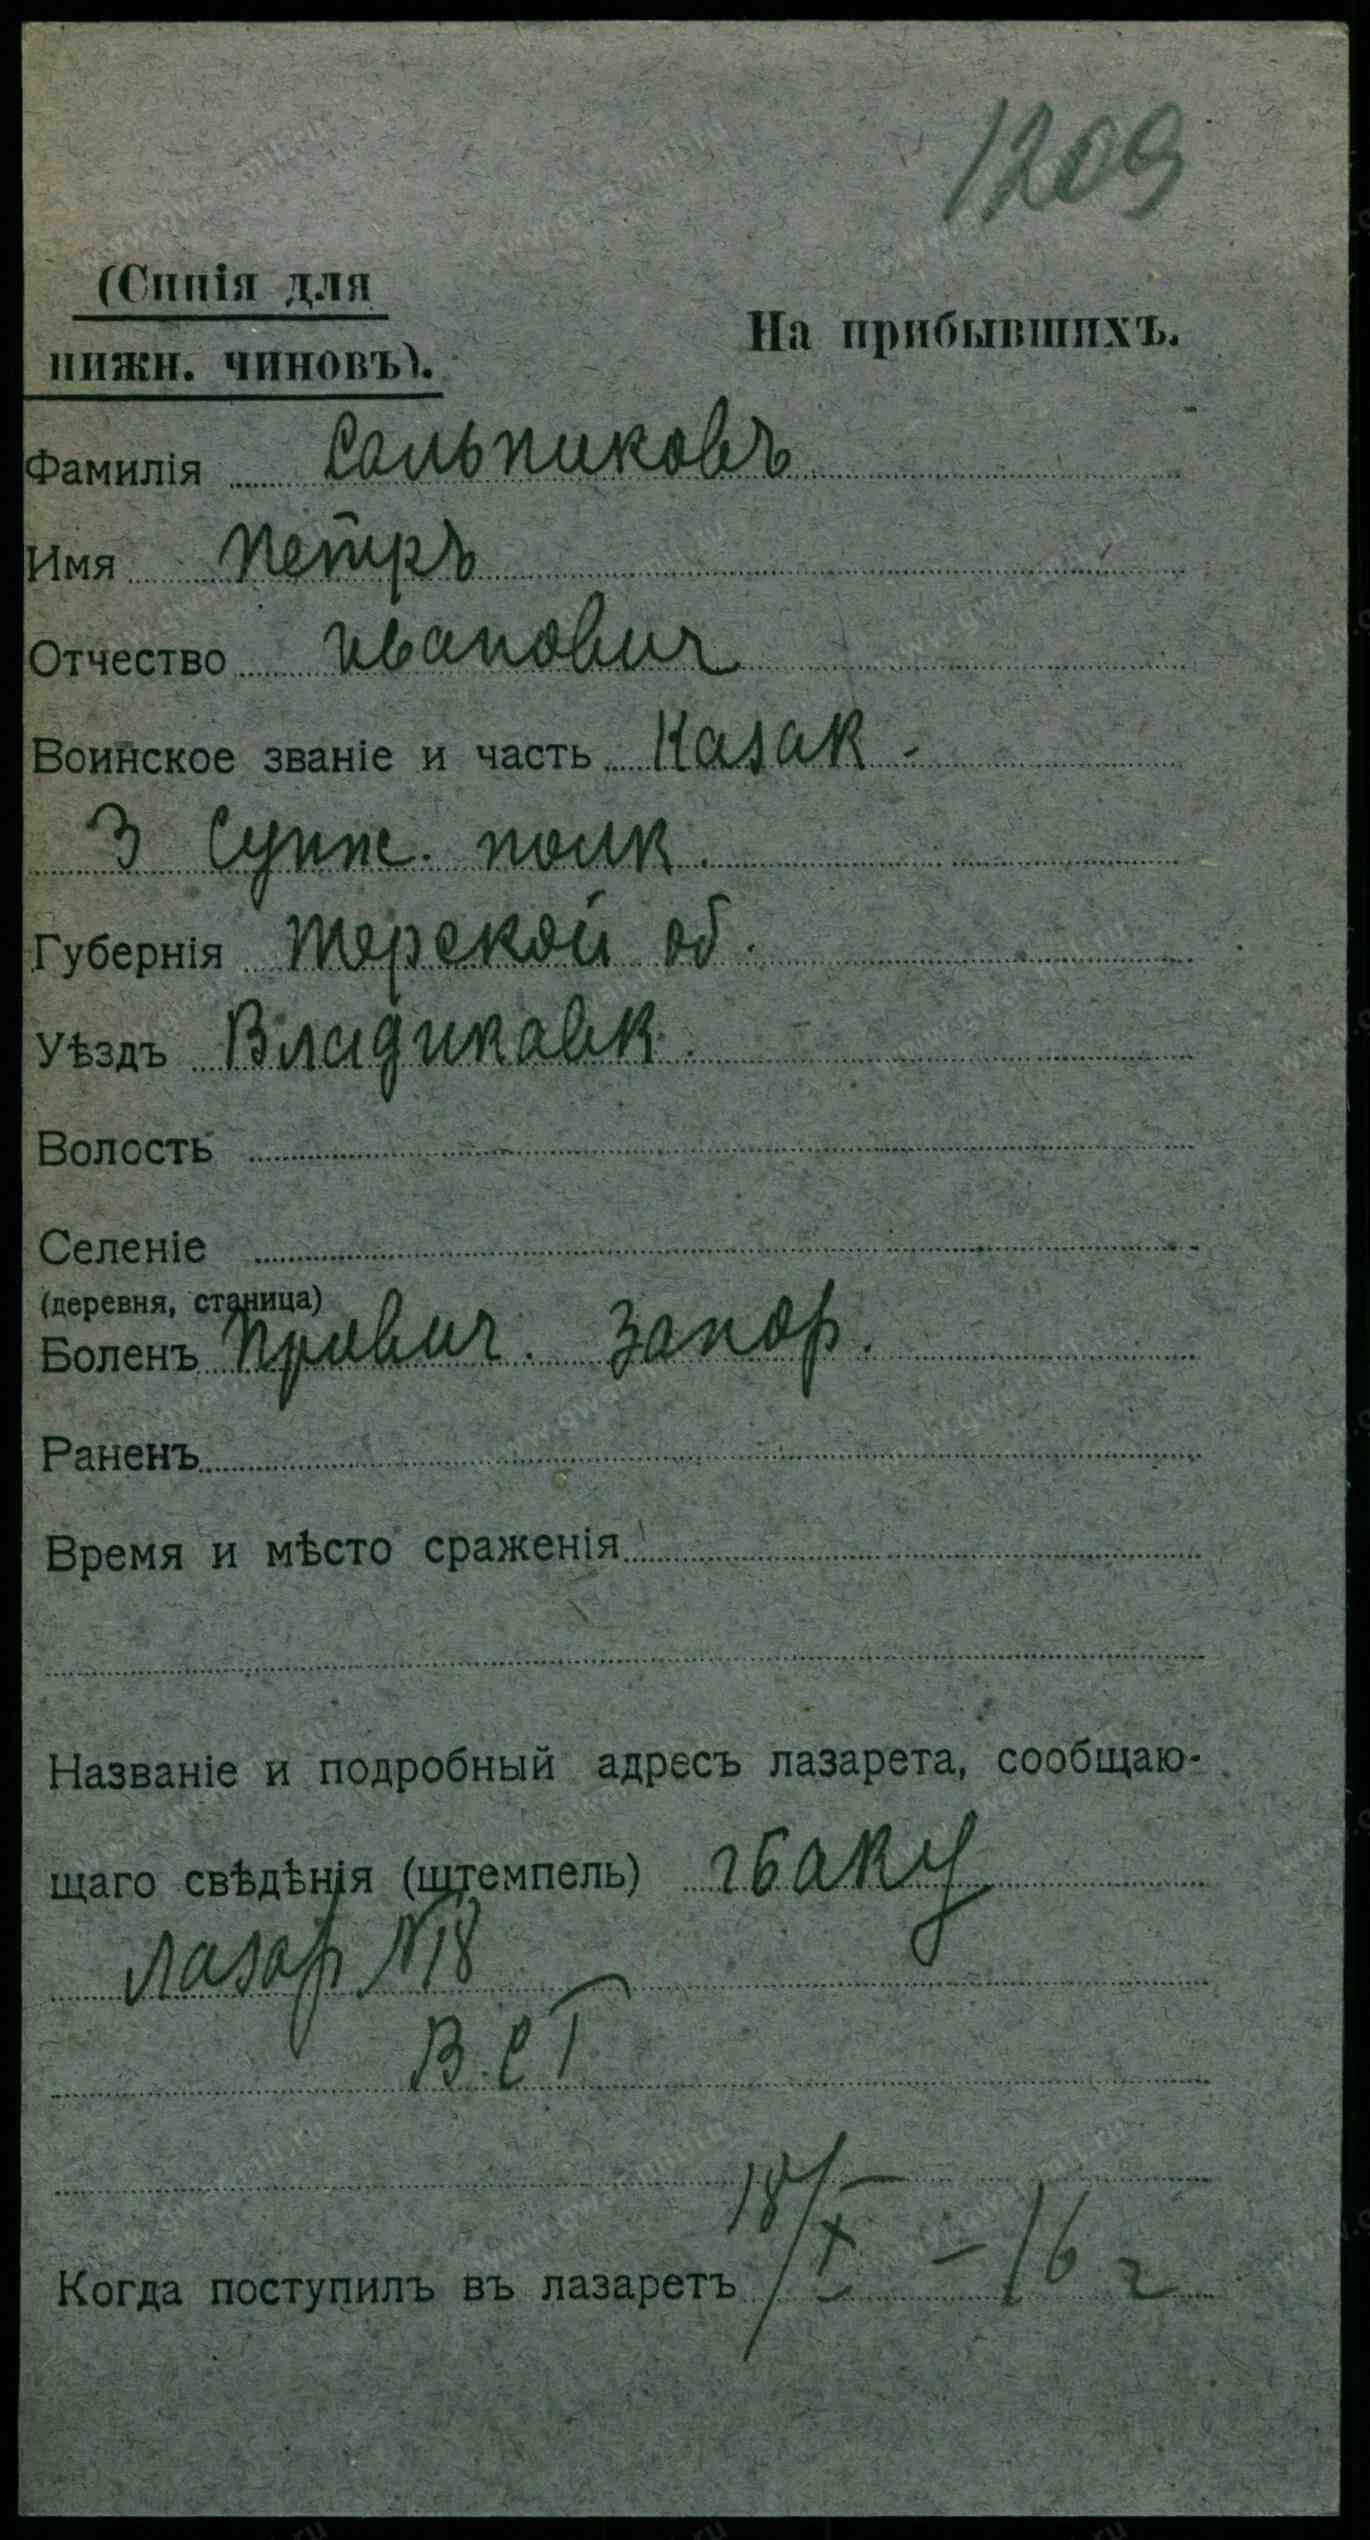 1209
(Синія для
На прибывшихъ.
нижн. чиновъ).
Фамилія Сальниковъ
Имя Петръ
Отчество Иванович
Воинское званіе и часть Казак -
3 Сунж. полк.
Губернія Терской об.
Уѣздъ Владикавк.
Волость
Селеніе
(деревня, станица)
Боленъ Привыч. запор.
Раненъ
Время и мѣсто сраженія
Названіе и подробный адресъ лазарета, сообщаю-
щаго свѣдѣнія (штемпель) г Баку
Лазар №18
В. С Г
Когда поступилъ въ лазаретъ 18/X - 16 г